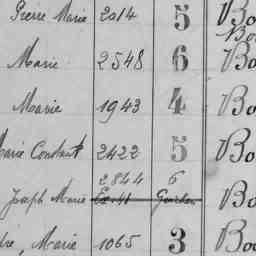 Pierre Marie 2014 5 Bo
Bo
Marie 2548 6 Bo
Marie 1943 4 Bo
Marie Constant 2422 5 Bo
2844 6
Joseph Marie Ex. 41 Bo
dre, Marie 1065 3 Bo